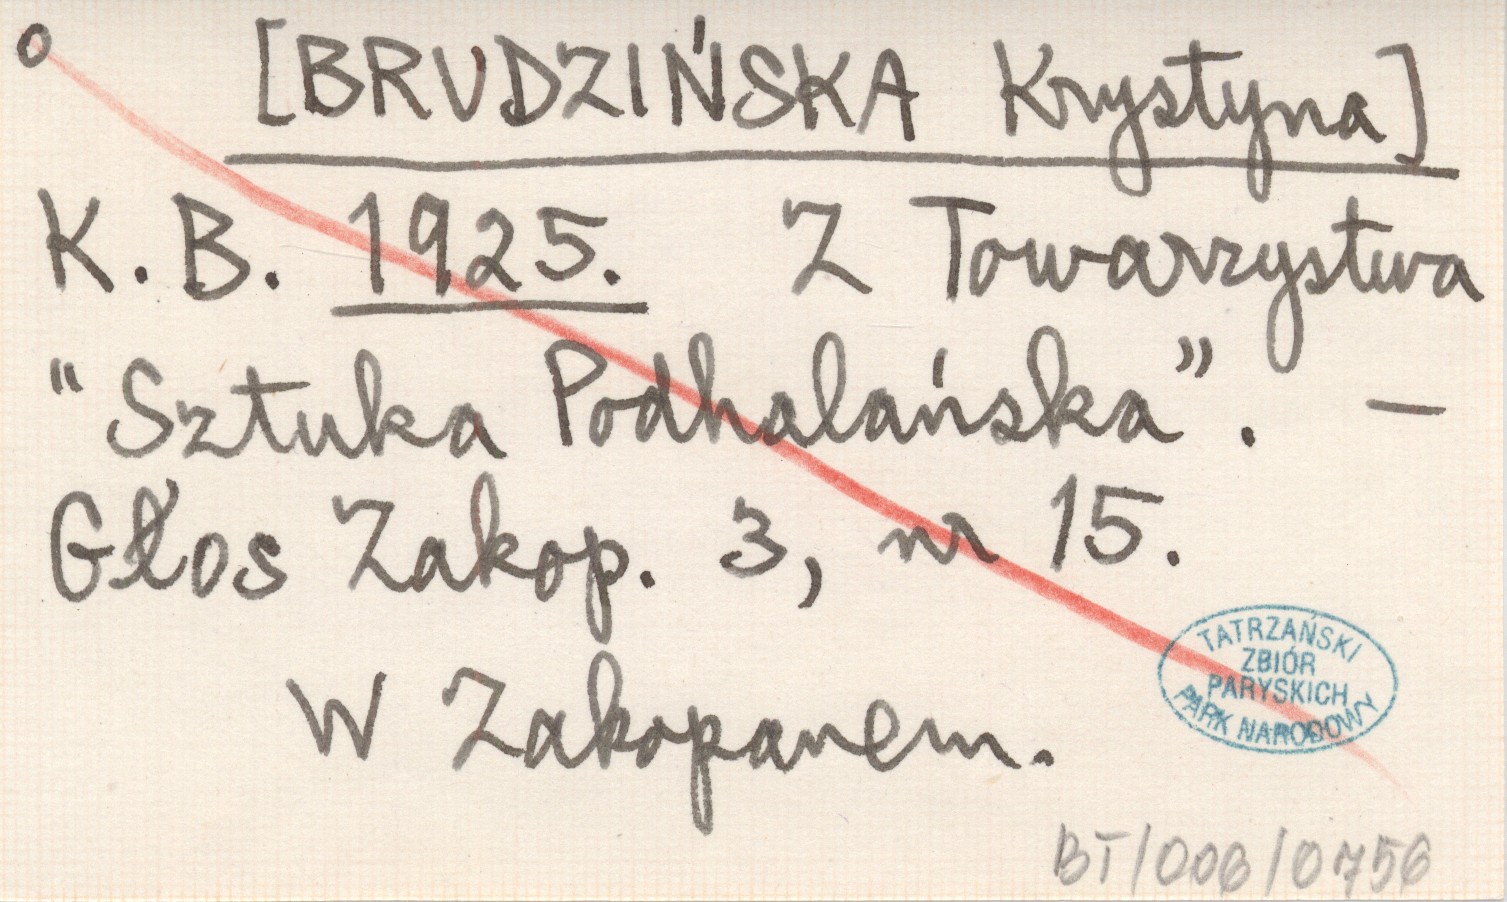 [BRUDZIŃSKA Krystyna]
K. B. 1925. Z Towarzystwa
"Sztuka Podhalańska". —
Głos Zakop. 3, nr 15.
W Zakopanem.
TATRZAŃSKI
ZBIÓR
PARYSKICH
PARK NARODOWY
BT/006/0756